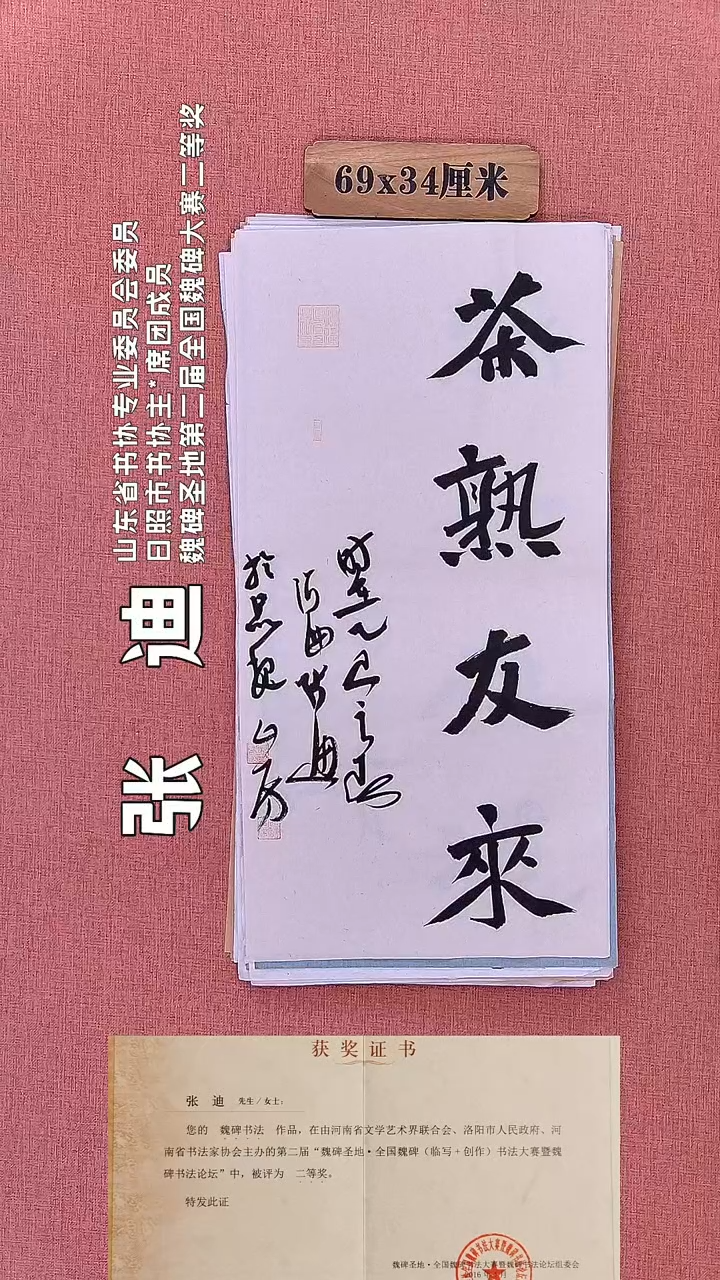 69x34厘米
山东省书协专业委员会委员
日照市书协主*席团成员
魏碑圣地第二届全国魏碑大赛二等奖
张 迪
茶熟友來
获奖证书
张 迪 先生/女士：
您的 魏碑书法 作品，在由河南省文学艺术界联合会、洛阳市人民政府、河
南省书法家协会主办的第二届“魏碑圣地·全国魏碑（临写+创作）书法大赛暨魏
碑书法论坛”中，被评为 二等奖。
特发此证
魏碑圣地·全国魏碑书法大赛暨魏碑书法论坛组委会